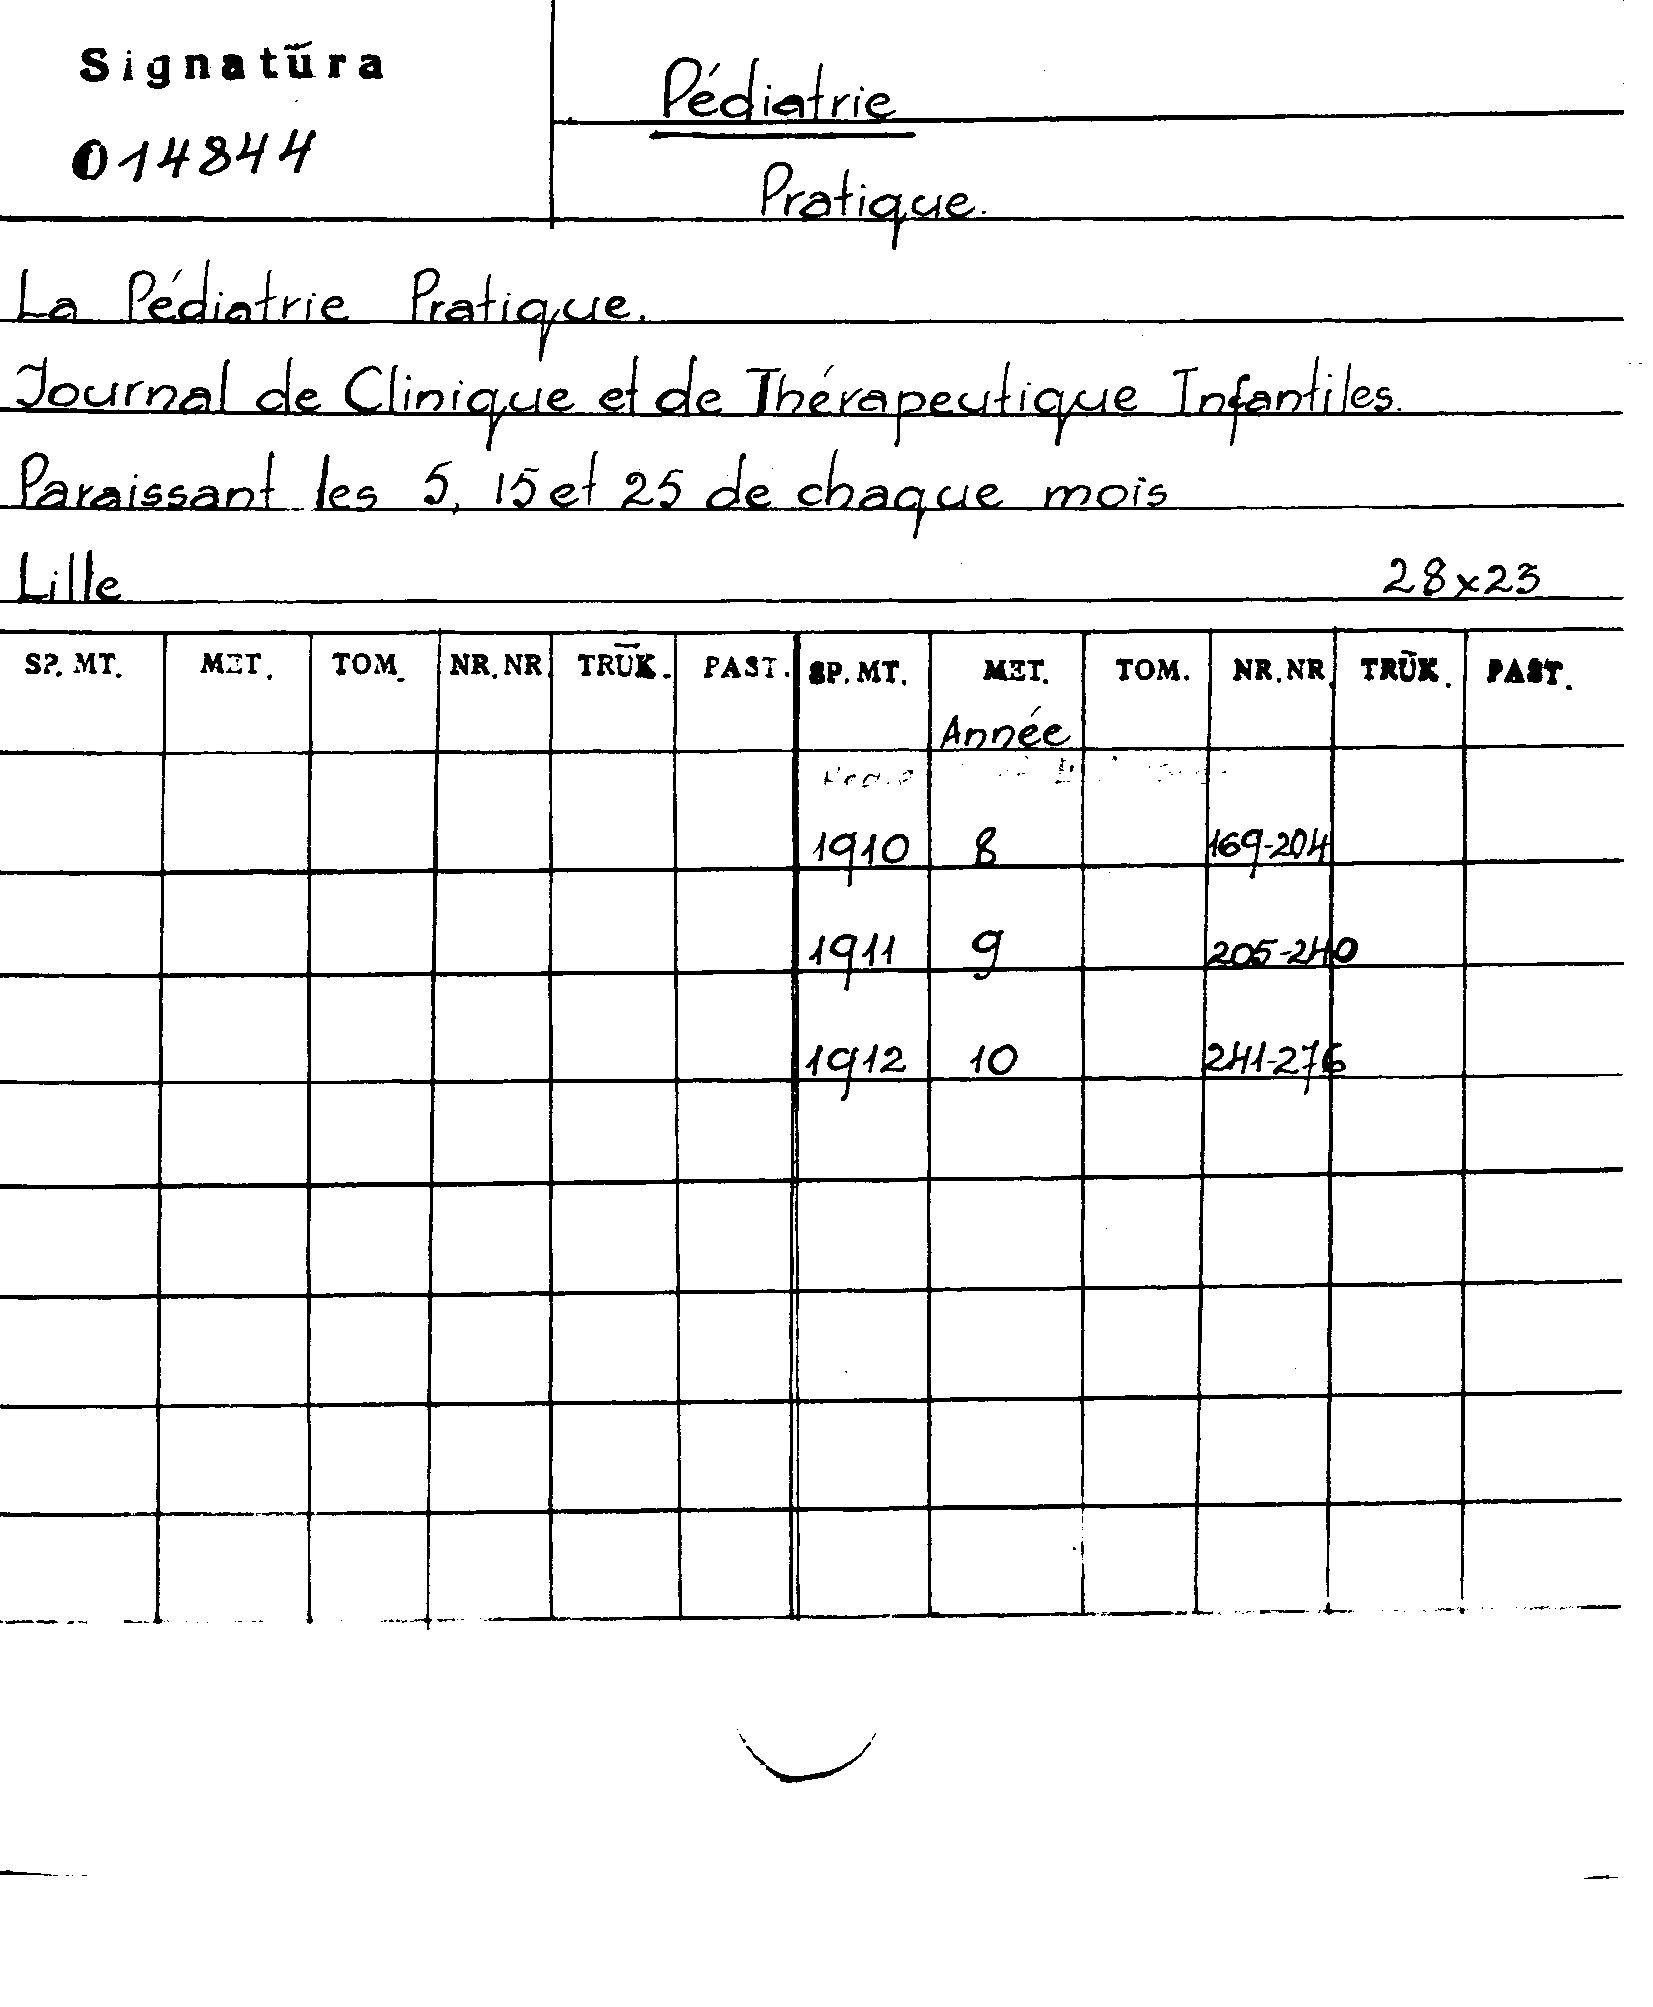 Signatūra
014844
Pédiatrie
Pratique.
La Pédiatrie Pratique.
Journal de Clinique et de Thérapeutique Infantiles.
Paraissant les 5, 15 et 25 de chaque mois
Lille 28x23
SP. MT. MET. TOM. NR. NR. TRŪK. PAST. SP. MT. MET. TOM. NR. NR. TRŪK. PAST.
Année
1910 8 169-204
1911 9 205-240
1912 10 241-276